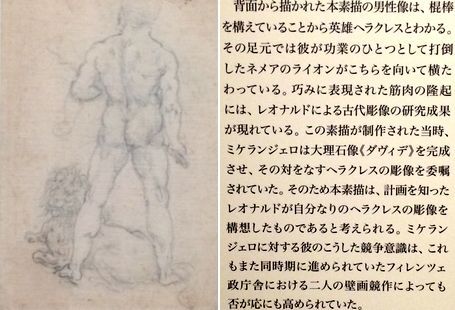 背面から描かれた本素描の男性像は、棍棒
を構えていることから英雄ヘラクレスとわかる。
その足元では彼が功業のひとつとして打倒
したネメアのライオンがこちらを向いて横た
わっている。巧みに表現された筋肉の隆起
には、レオナルドによる古代彫像の研究成果
が現れている。この素描が制作された当時、
ミケランジェロは大理石像《ダヴィデ》を完成
させ、その対をなすヘラクレスの彫像を委嘱
されていた。そのため本素描は、計画を知った
レオナルドが自分なりのヘラクレスの彫像を
構想したものであると考えられる。ミケラン
ジェロに対する彼のこうした競争意識は、これ
もまた同時期に進められていたフィレンツェ
政庁舎における二人の壁画競作によっても
否が応にも高められていた。